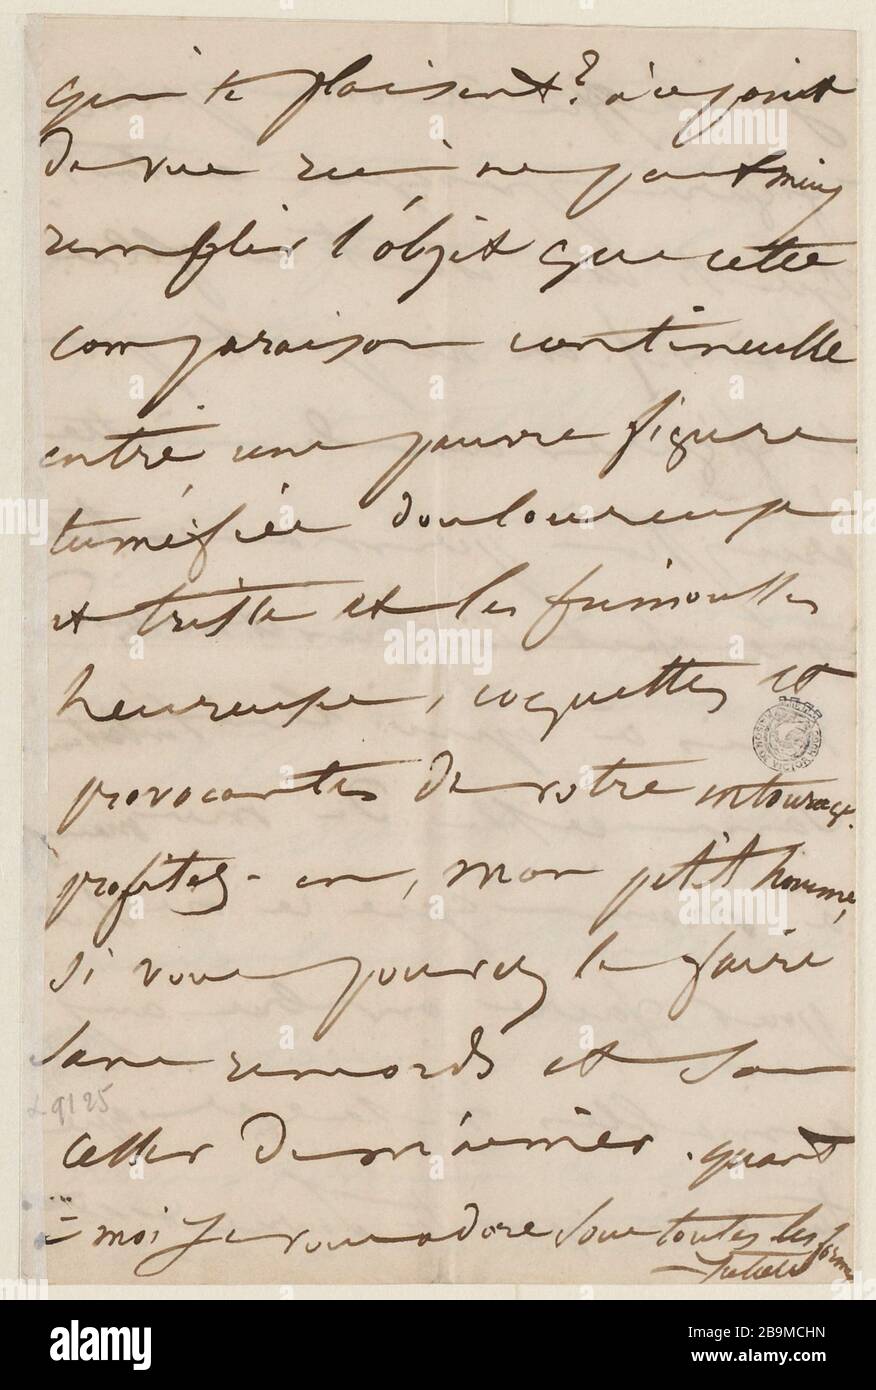 qui te plaisent? à ce point
de vue rien ne peut mieux
remplir l'objet que cette
comparaison continuelle
entre une pauvre figure
tuméfiée douloureuse
et triste et les frimousses
heureuses, coquettes et
provocantes de votre entourage.
profitez-en, mon petit homme,
si vous pouvez le faire
sans remords et sans
cesser de m'aimer. quant
à moi je vous adore sous toutes les formes
Juliette
L 9125
MAISON DE VICTOR HUGO
alamy
Image ID: 2B9MCHN
www.alamy.com